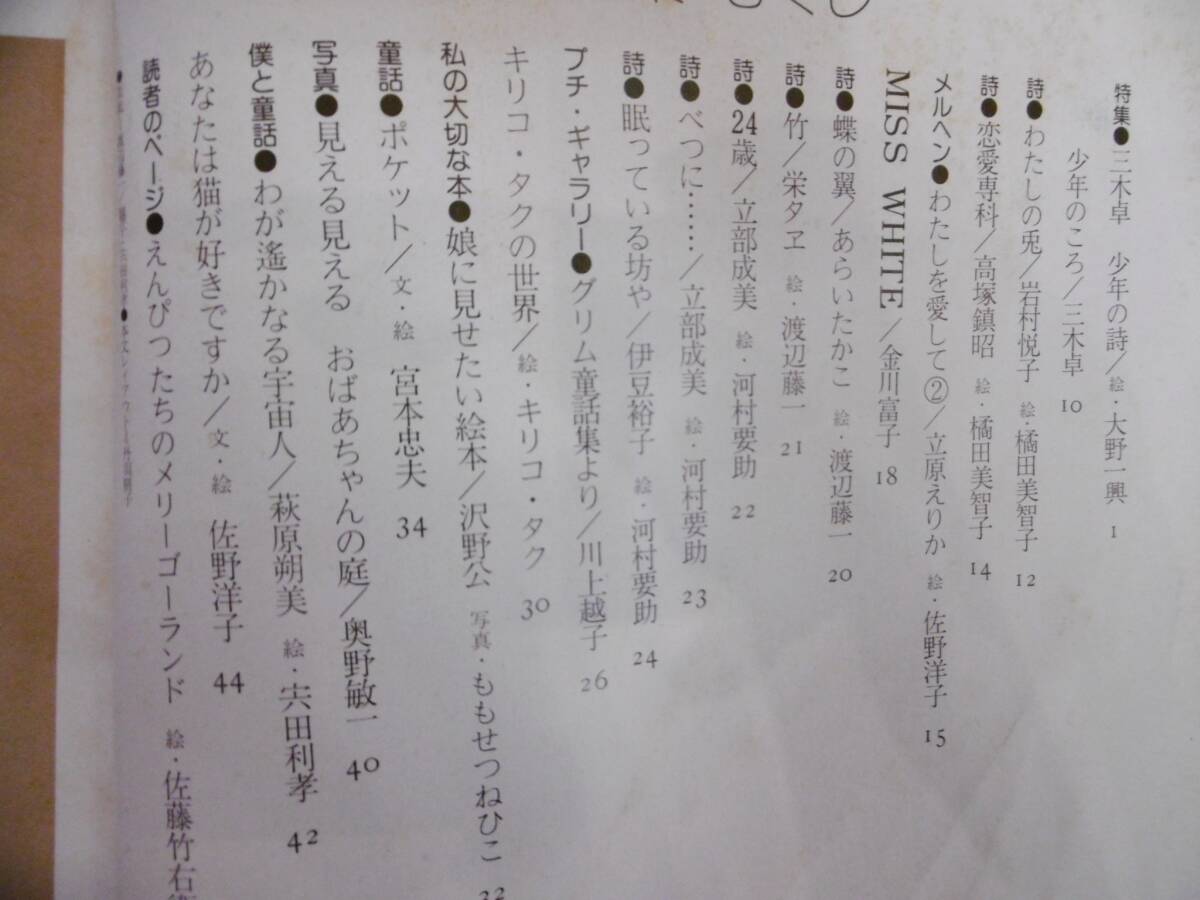 特集●三木卓　少年の詩／絵・大野一興　1
少年のころ／三木卓　10
詩●わたしの兎／岩村悦子　絵・橘田美智子　12
詩●恋愛専科／高塚鎮昭　絵・橘田美智子　14
メルヘン●わたしを愛して②／立原えりか　絵・佐野洋子　15
MISS WHITE／金川富子　18
詩●蝶の翼／あらいたかこ　絵・渡辺藤一　20
詩●竹／栄タヱ　絵・渡辺藤一　21
詩●24歳／立部成美　絵・河村要助　22
詩●べつに……／立部成美　絵・河村要助　23
詩●眠っている坊や／伊豆裕子　絵・河村要助　24
プチ・ギャラリー●グリム童話集より／川上越子　26
キリコ・タクの世界／絵・キリコ・タク　30
私の大切な本●娘に見せたい絵本／沢野公　写真・ももせつねひこ
童話●ポケット／文・絵　宮本忠夫　34
写真●見える見える　おばあちゃんの庭／奥野敏一　40
僕と童話●わが遙かなる宇宙人／萩原朔美　絵・宍田利孝　42
あなたは猫が好きですか／文・絵　佐野洋子　44
読者のページ●えんぴつたちのメリーゴーランド　絵・佐藤竹右